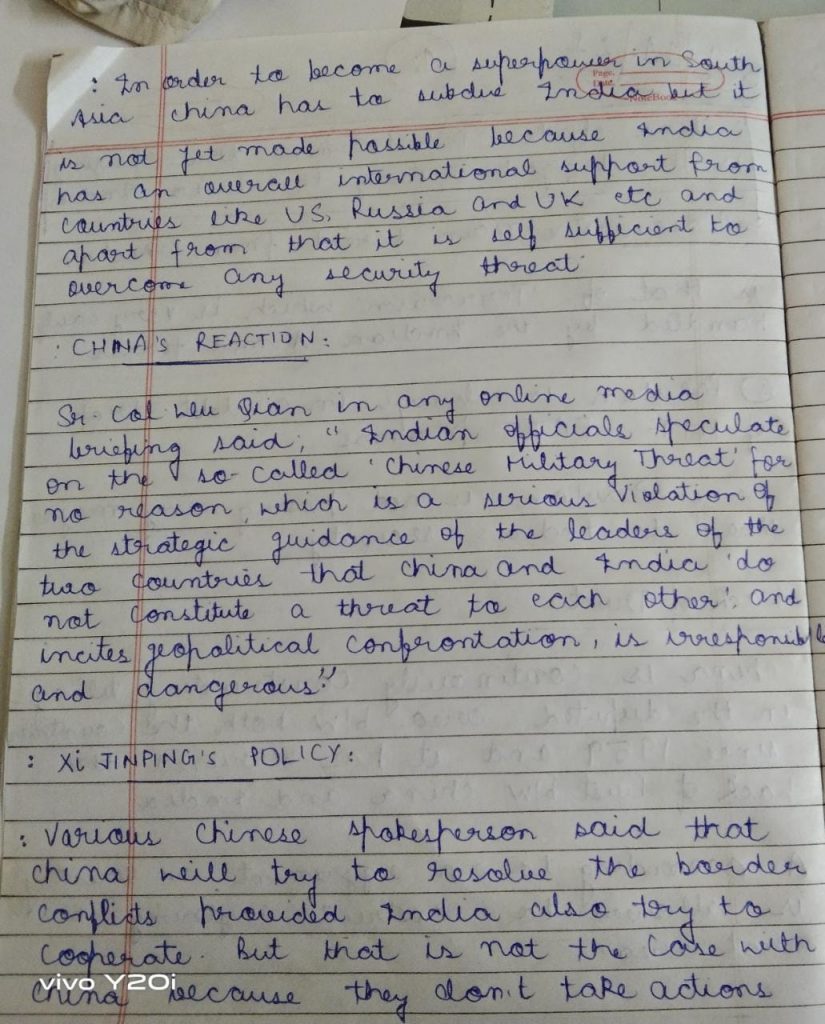 : In order to become a superpower in South
Page.
Asia China has to subdue India but it
NoteBook
is not yet made possible because India
has an overall international support from
countries like US, Russia and UK etc and
apart from that it is self sufficient to
overcome any security threat.
: CHINA'S REACTION:
Sr. Col Wu Qian in any online media
briefing said, "Indian officials speculate
on the so-called 'Chinese Military Threat' for
no reason, which is a serious violation of
the strategic guidance of the leaders of the
two countries that China and India 'do
not constitute a threat to each other', and
incites geopolitical confrontation, is irresponsible
and dangerous."
: Xi JINPING'S POLICY:
: Various Chinese spokesperson said that
China will try to resolve the boarder
conflicts provided India also try to
cooperate. But that is not the case with
China because they don't take actions
vivo Y20i